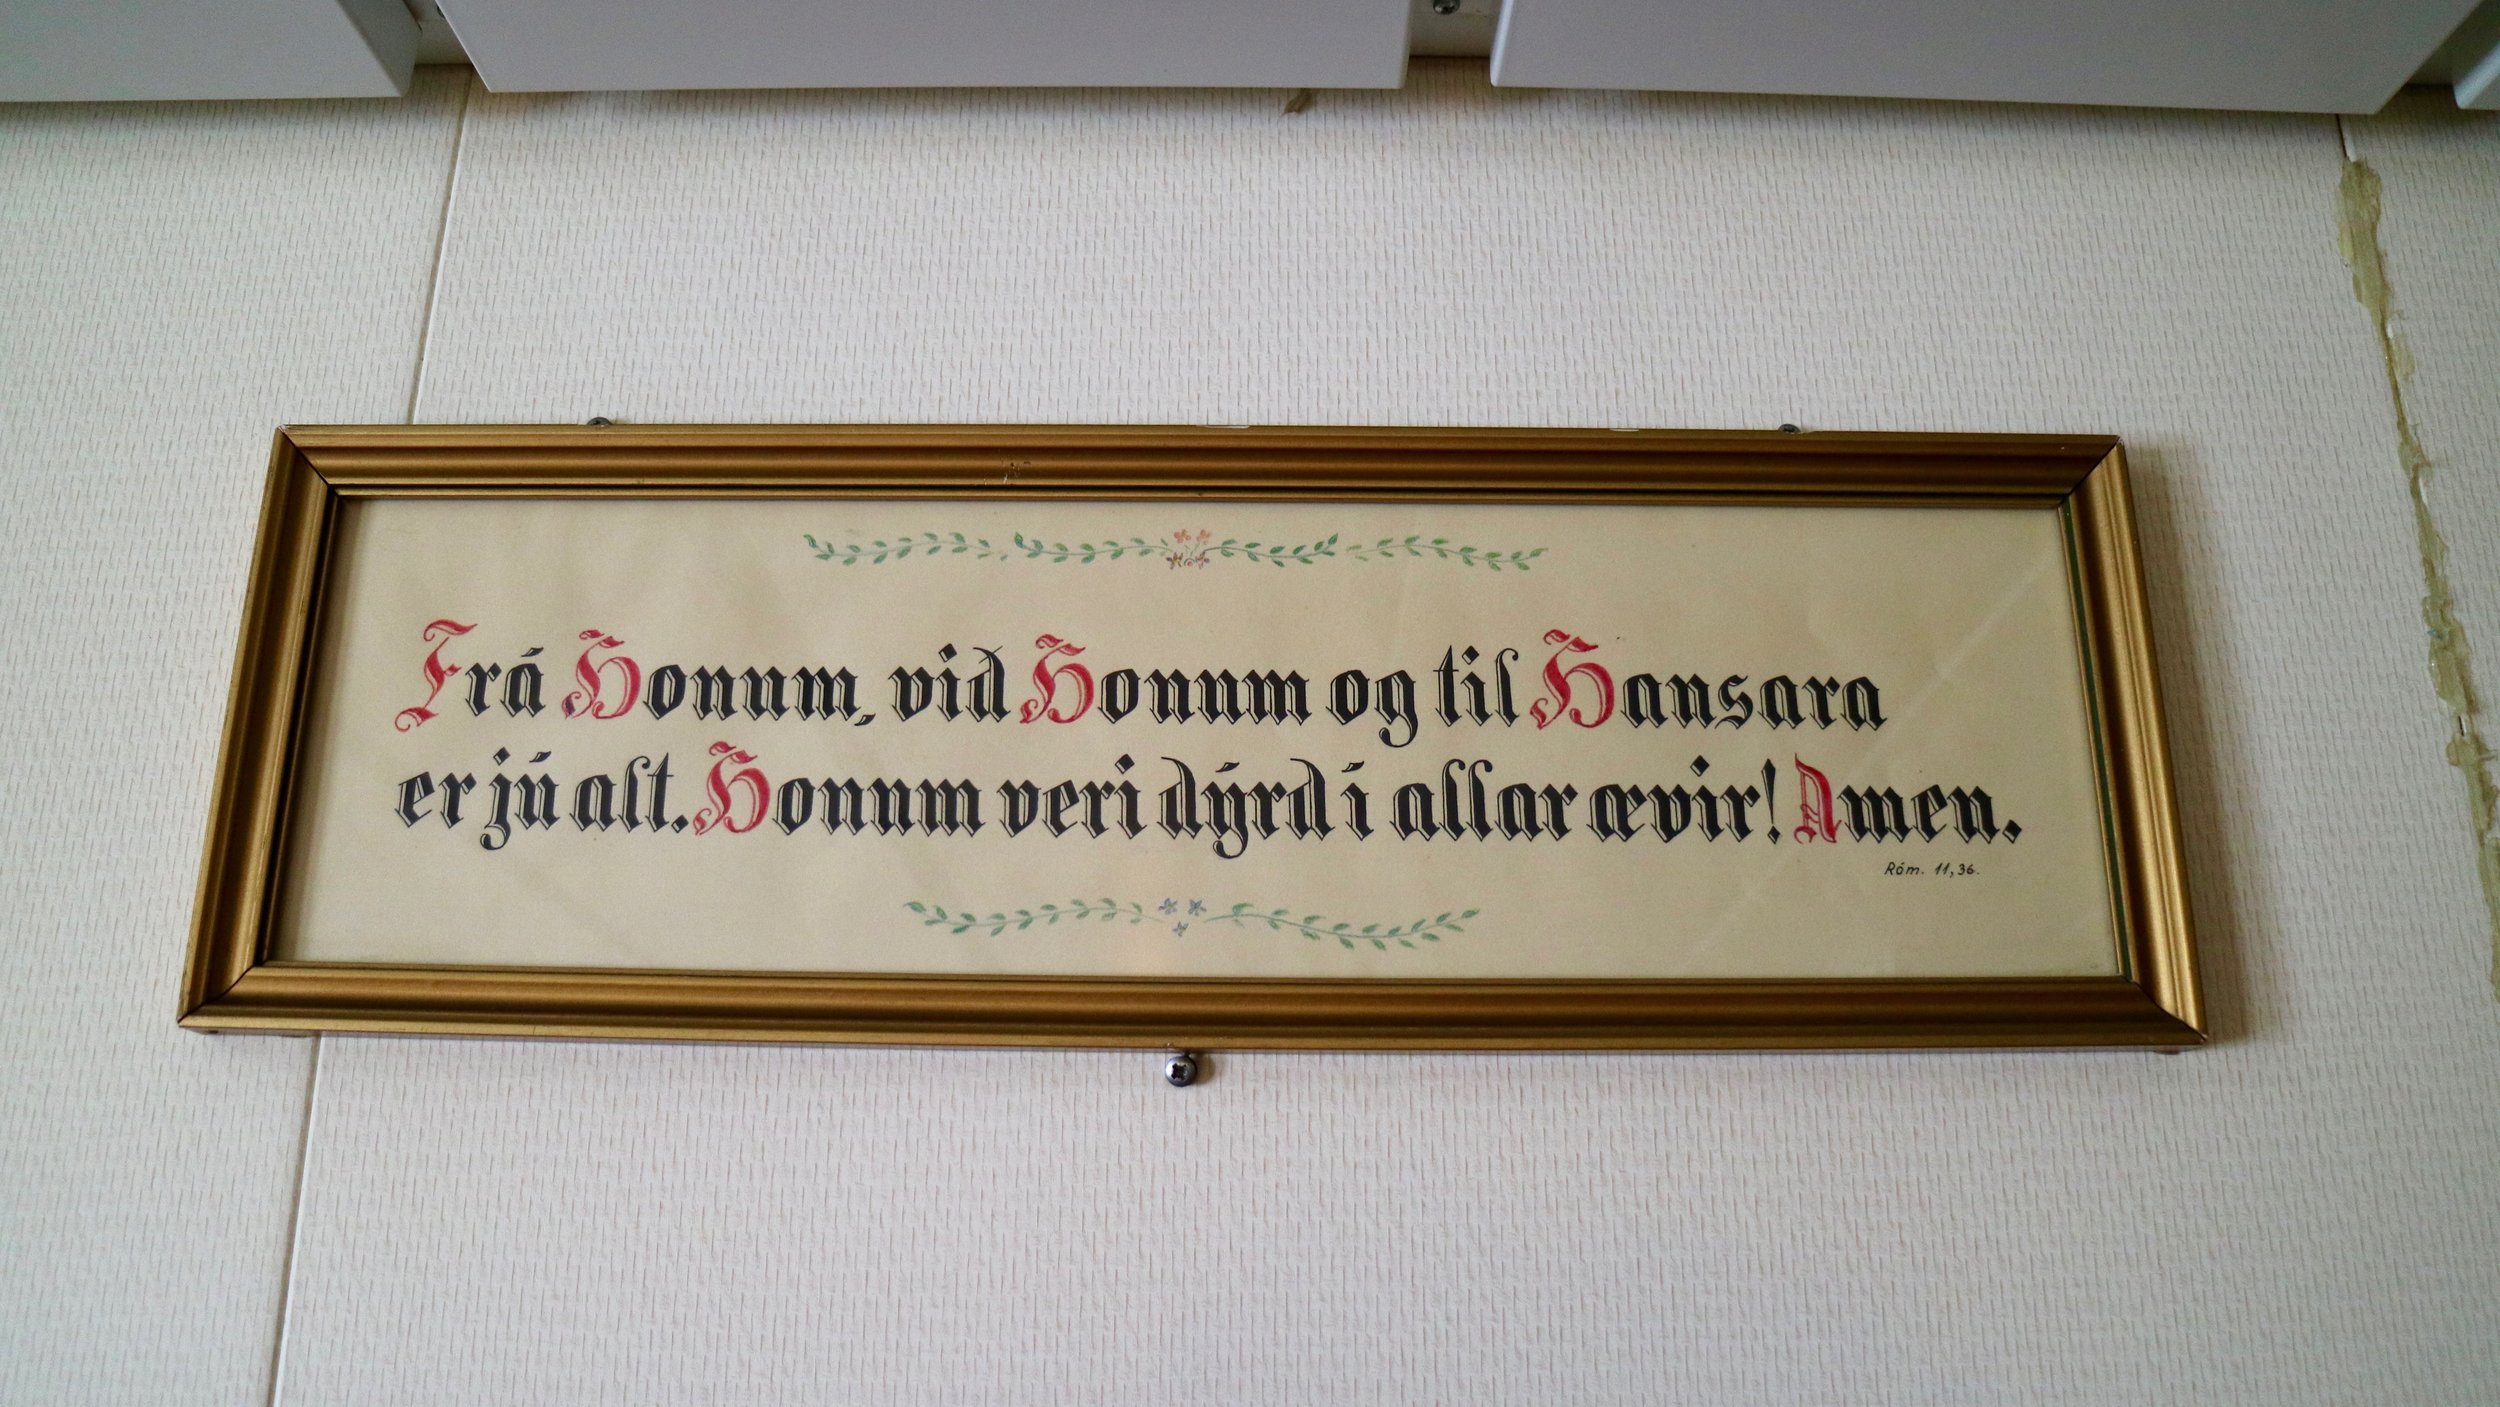 Frá Honum, við Honum og til Hansara
er jú alt. Honum veri dýrd í allar ævir! Amen.
Róm. 11,36.